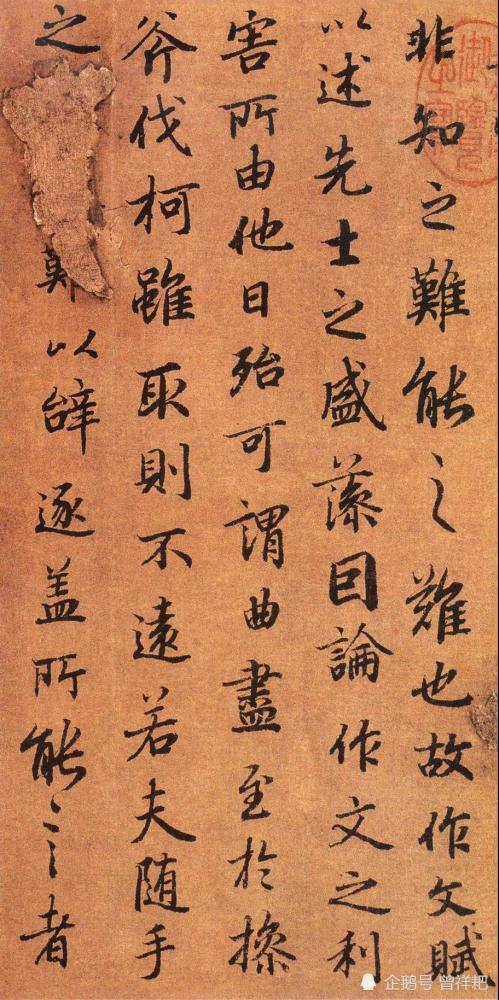 非知之難能之難也故作文賦
以述先士之盛藻因論作文之利
害所由他日殆可謂曲盡至於操
斧伐柯雖取則不遠若夫随手
之難以辝逐盖所能言者
企鹅号 曾祥耙